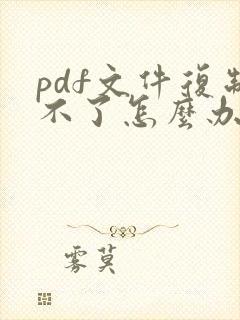 pdf文件復制
不了怎麼办
雾莫